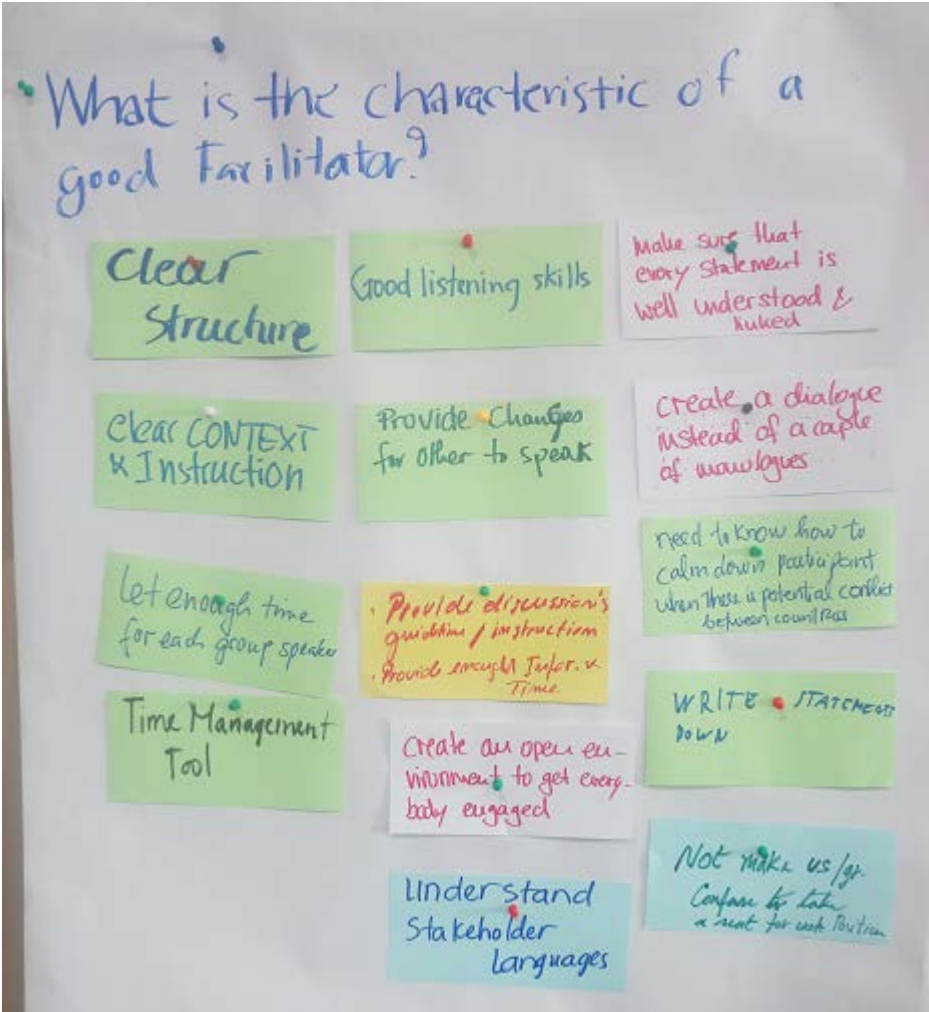 What is the characteristic of a
good Facilitator?
Clear
Structure
Clear CONTEXT
& Instruction
Let enough time
for each group speaker
Time Management
Tool
Good listening skills
Provide Changes
for other to speak
• Provide discussion's
guideline / instruction
• Provide enough Infor. &
Time
Create an open en-
vironment to get every-
body engaged
Understand
Stakeholder
languages
Make sure that
every statement is
well understood &
create a dialogue
instead of a cuple
of monologues
need to know how to
calm down participant
when there is potential conflict
between countries
WRITE STATEMENT
DOWN
Not make us/gr.
Confuse to take
a seat for each Position